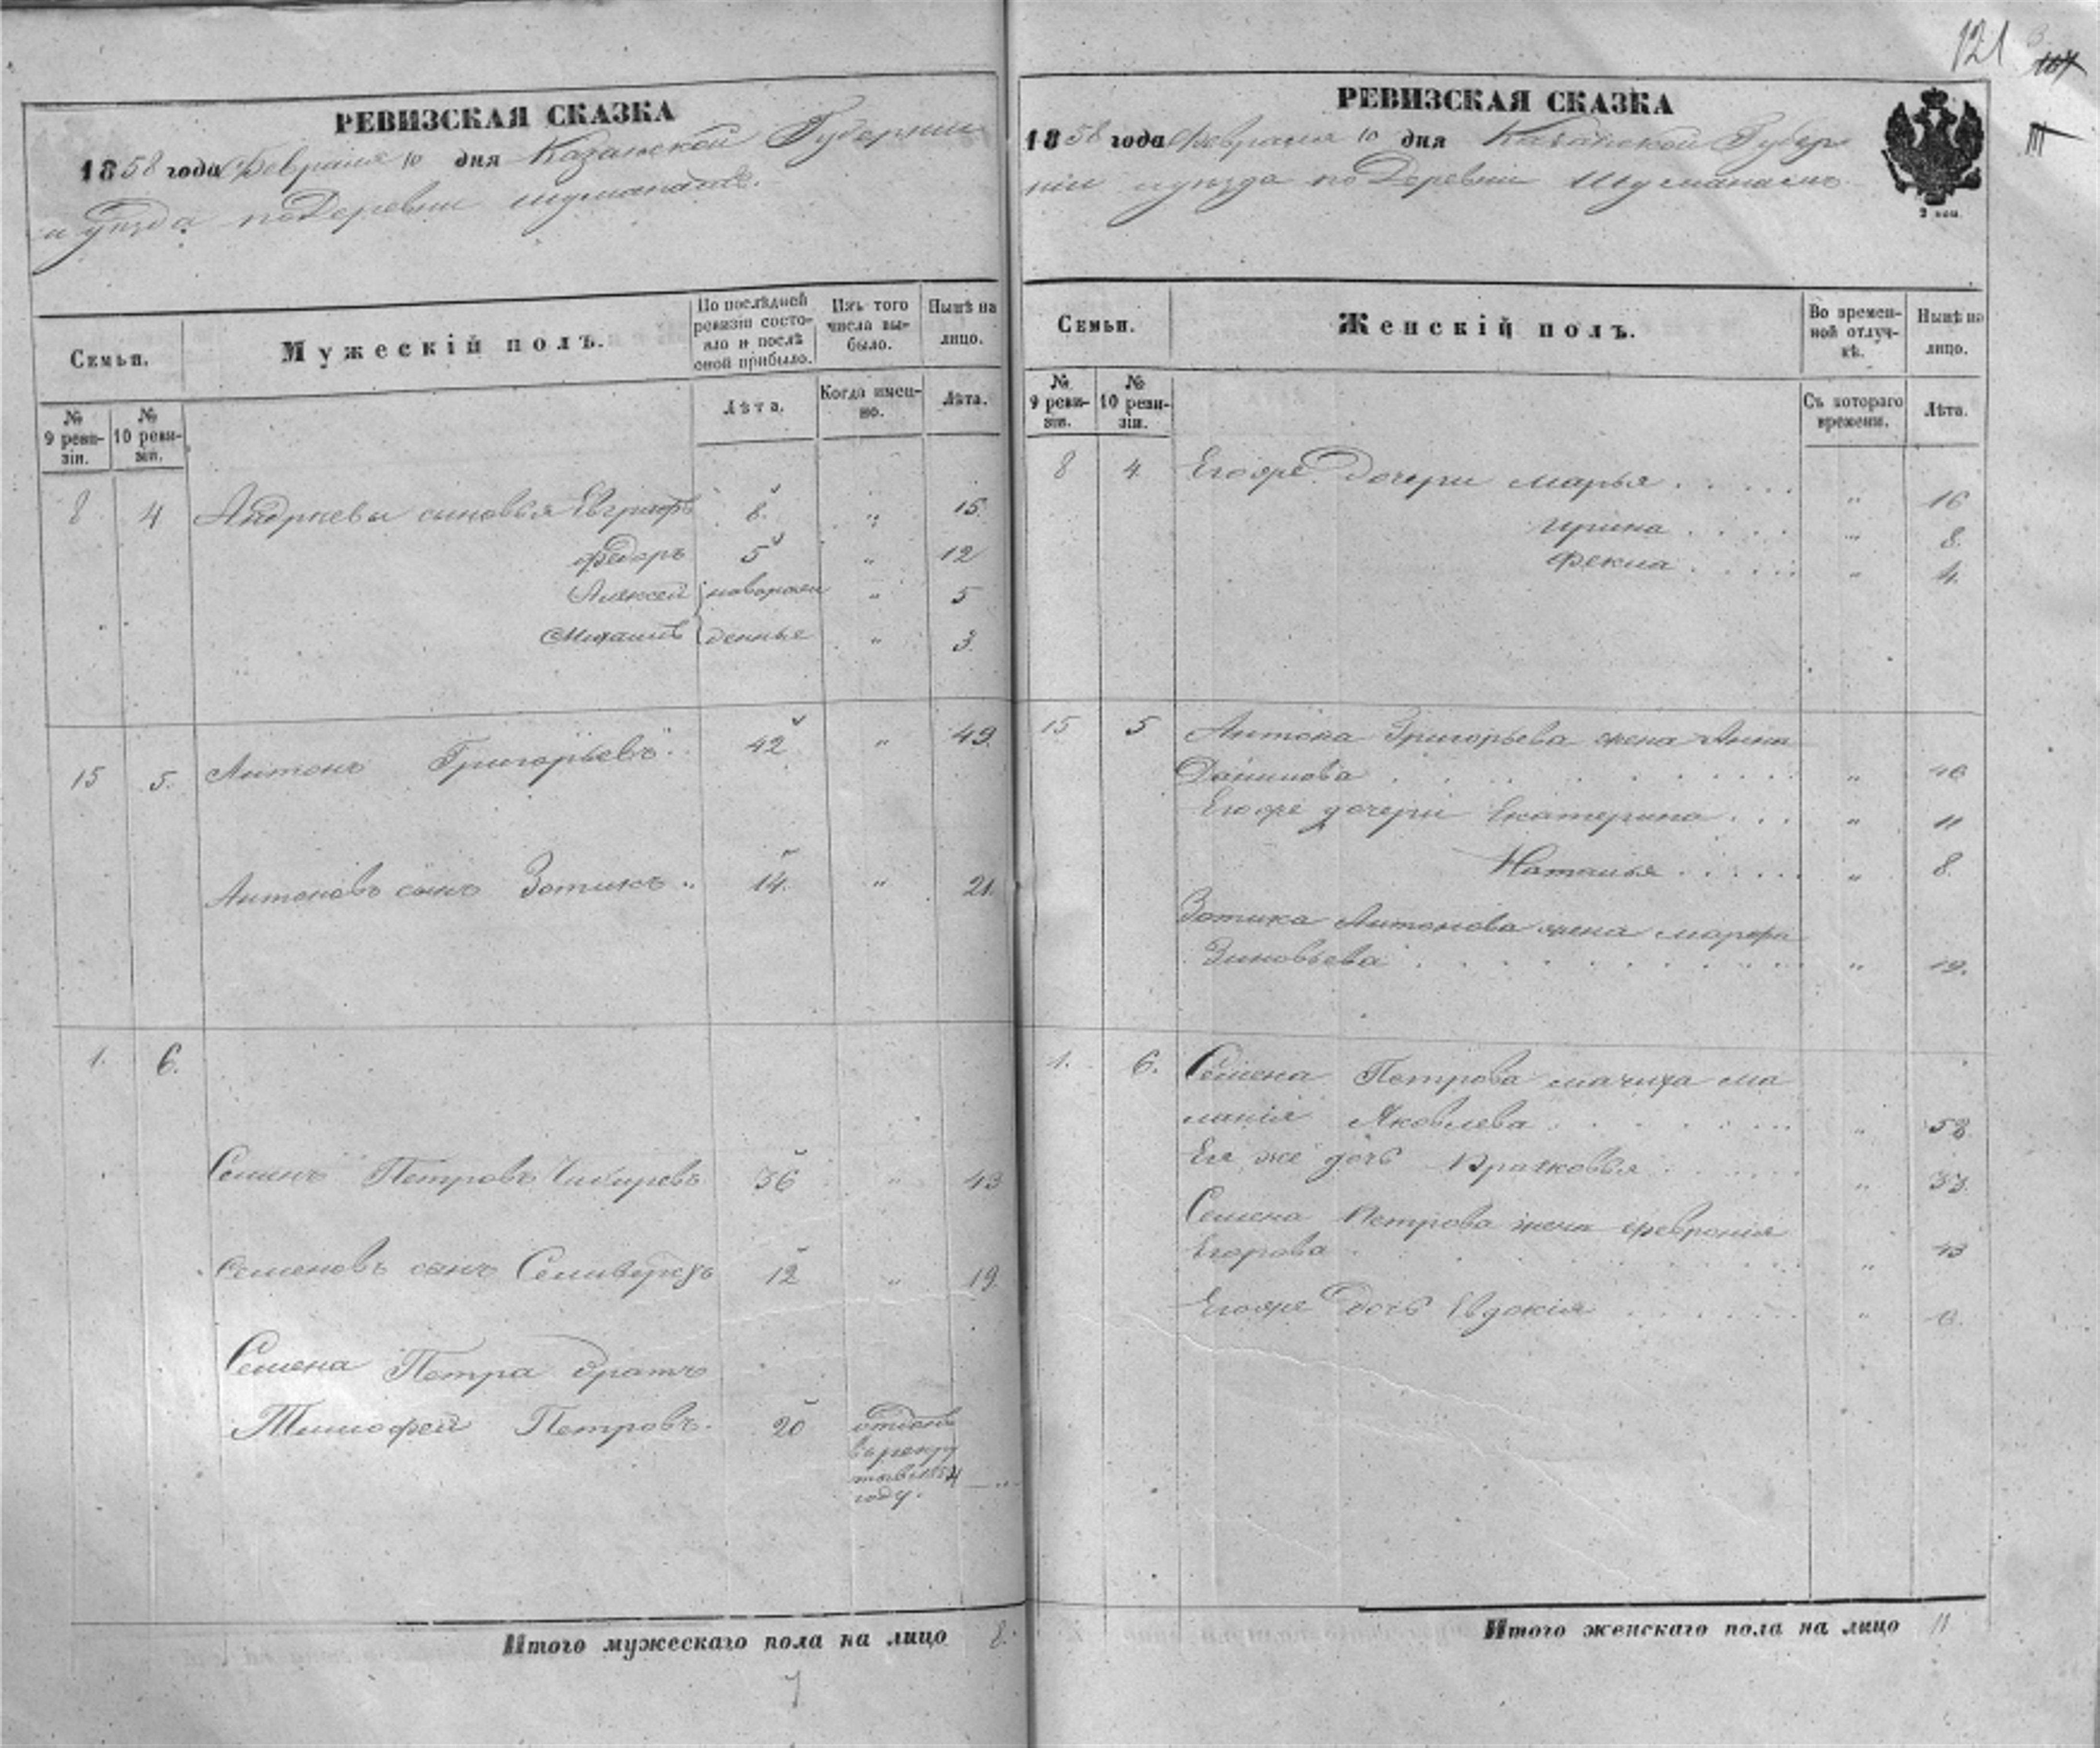 121
РЕВИЗСКАЯ СКАЗКА
1858 года Февраля 10 дня Казанской Губернии
и уезда по Деревни Шуманамъ.
Семьи.
Мужескій полъ.
По послѣдней ревизіи состояло и послѣ оной прибыло.
Изъ того числа выбыло.
Нынѣ на лицо.
№ 9 ревизіи.
№ 10 ревизіи.
Лѣта.
Когда именно.
Лѣта.
8 4 Андреевы сыновья Евграфъ 8 " 15.
Федоръ 5 " 12
Алексей новорож " 5
Михаилъ денные " 3.
15 5. Антонъ Григорьевъ 42 " 49.
Антоновъ сынъ Зотикъ 14. " 21.
1. 6.
Семенъ Петровъ 36 " 43
Семеновъ сынъ 12 " 19.
Семена Петра братъ
Тимофей Петровъ. 20 отданъ
въ рекру
ты в 1854
году.
Итого мужескаго пола на лицо 8.
7
РЕВИЗСКАЯ СКАЗКА
1858 года Февраля 10 дня Казанской Губер
ніи и уезда по Деревни Шуманамъ
2 коп.
Семьи.
Женскій полъ.
Во временной отлучкѣ.
Нынѣ на лицо.
№ 9 ревизіи.
№ 10 ревизіи.
Съ котораго времени.
Лѣта.
8 4. Егоже Дочери Марья . . . . " 16
Ирина . . . . " 8.
Фекла . . . . " 4.
15 5 Антона Григорьева жена Анна
Данилова . . . . "
Егоже дочери Екатерина . . . " 11
Наталья . . . . " 8.
Зотика Антонова жена Марфа
Зиновьева . . . . " 19.
1. 6. Семена Петрова мачиха Ма
ланія Яковлева . . . . " 58
Ея же дочь Прасковья . . . . " 33.
Семена Петрова жена Февронія
Егорова . . . . " 43
Егоже Дочь Евдокія . . . . "
Итого женскаго пола на лицо 11